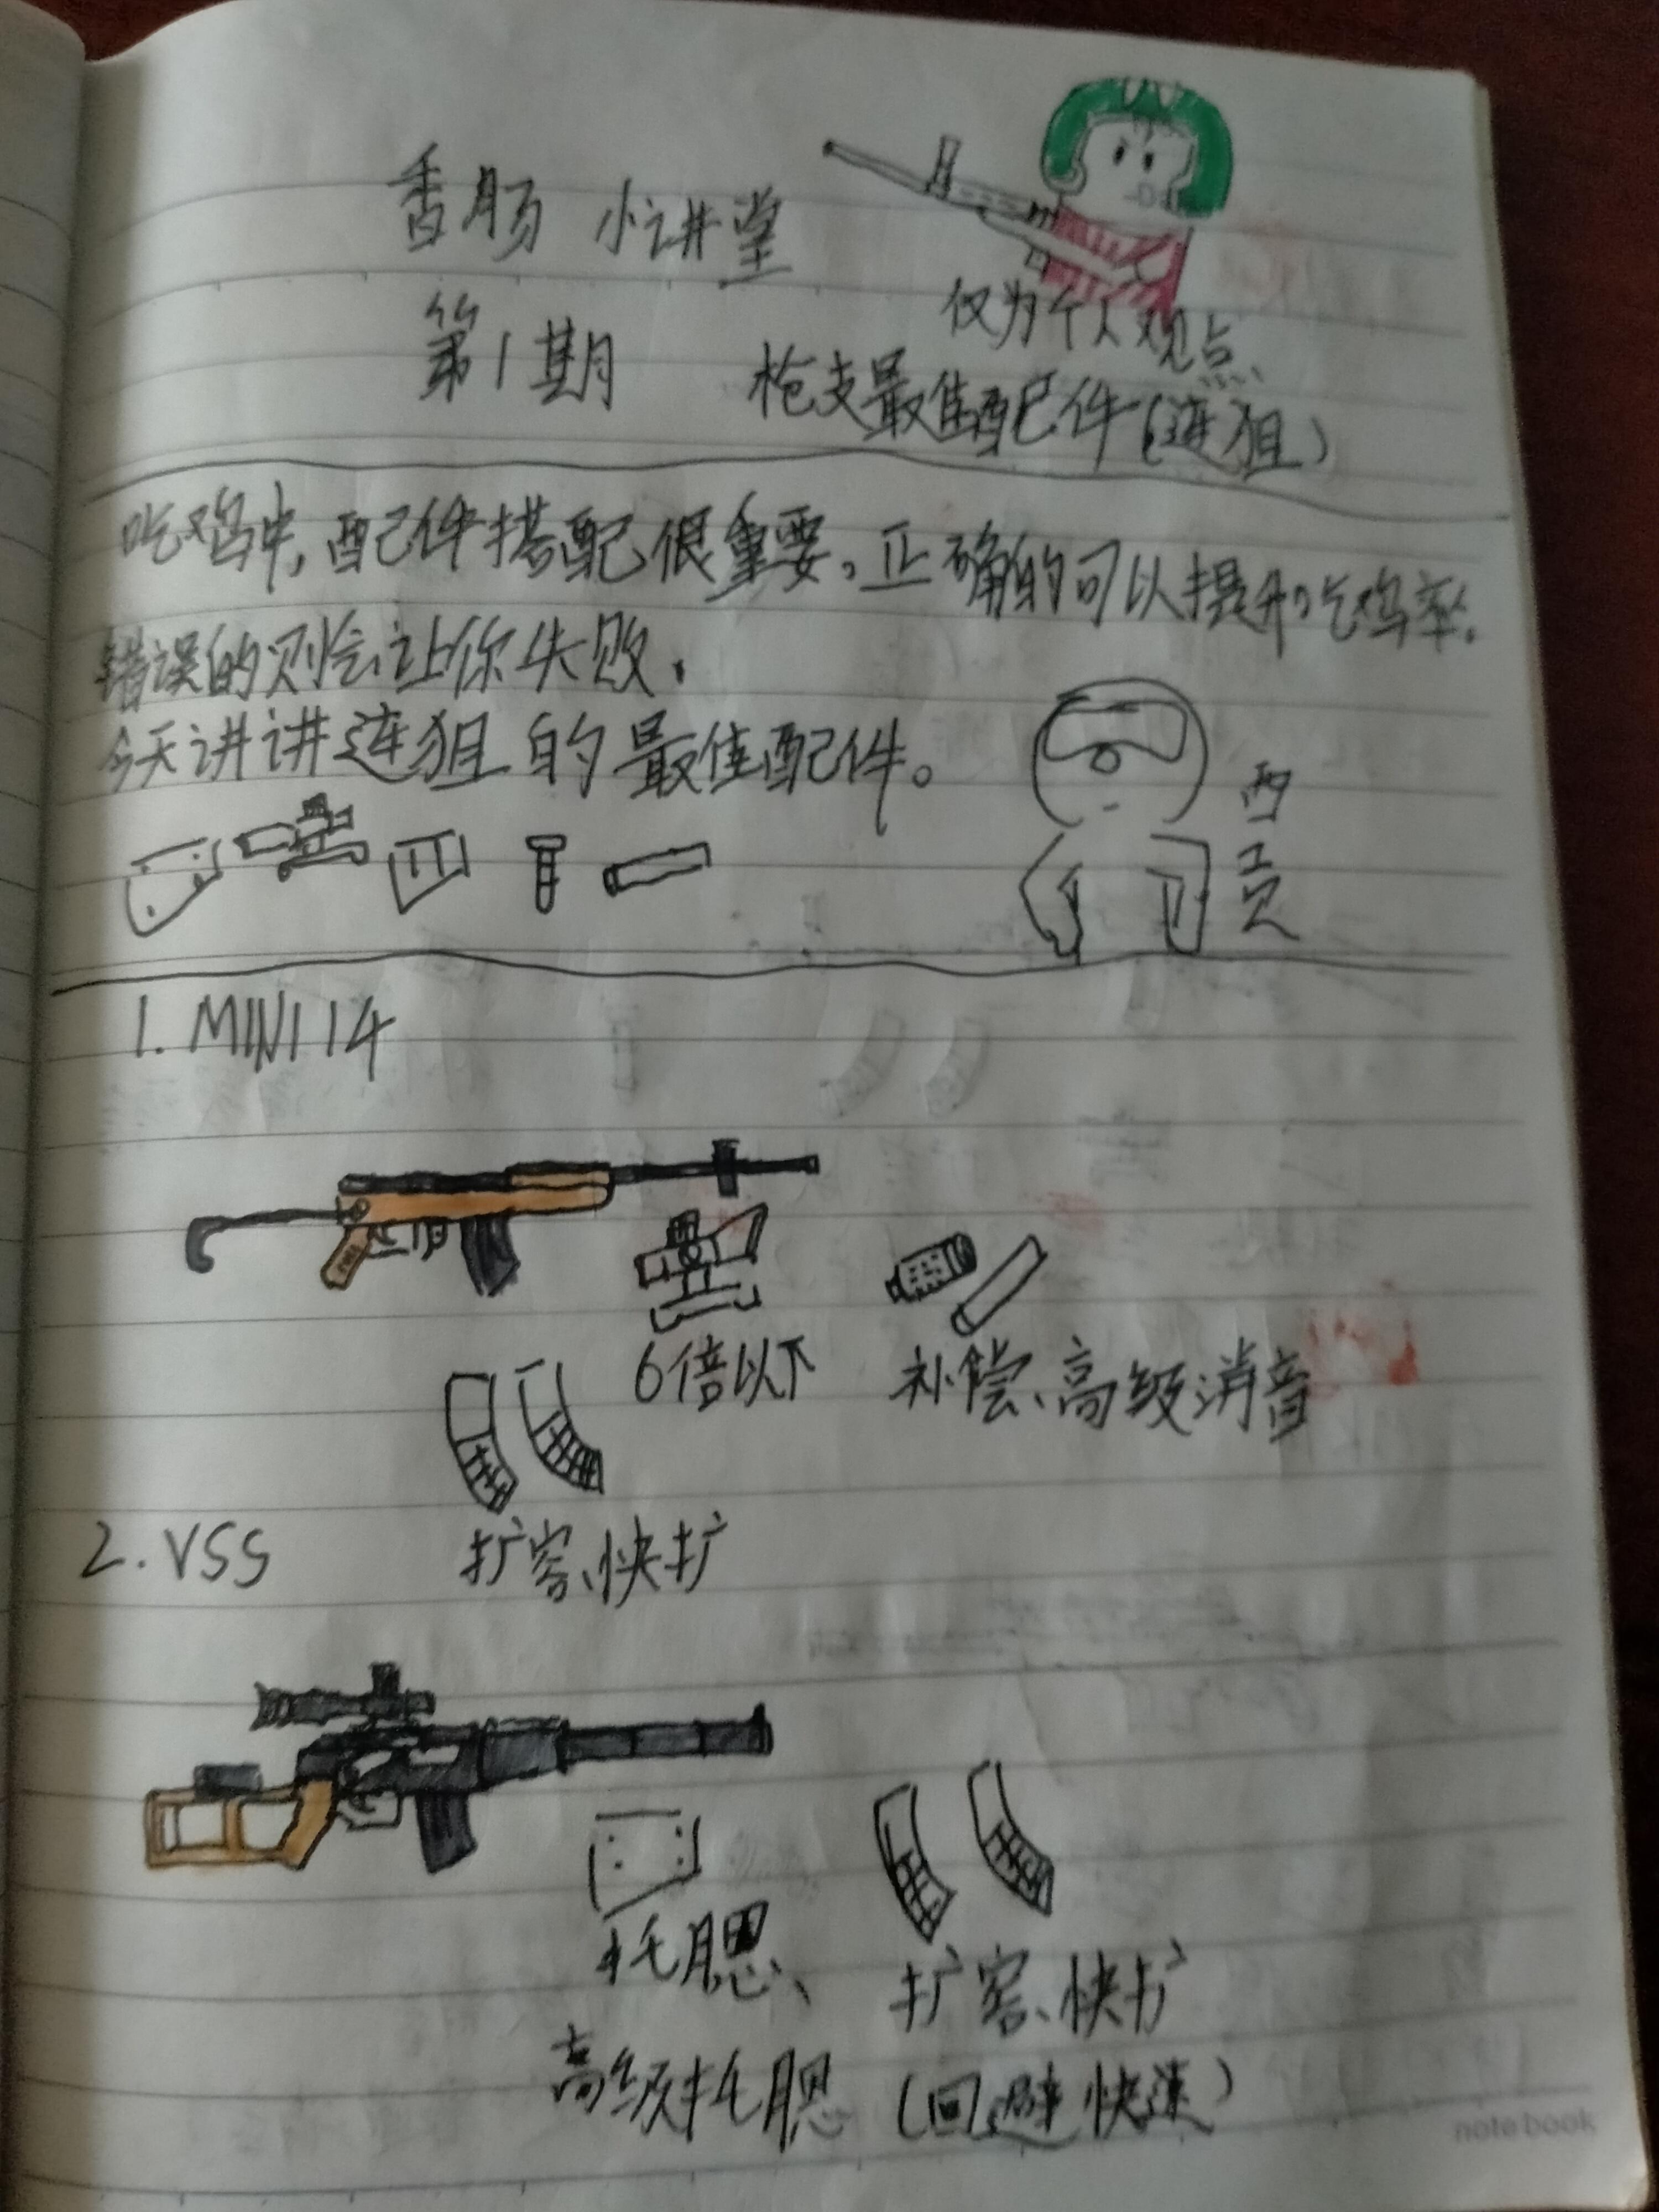 香肠 小讲堂
仅为个人观点
第1期 枪支最佳配件(连狙)
吃鸡中,配件搭配很重要。正确的可以提升吃鸡率.
错误的则会让你失败.
今天讲讲连狙的最佳配件。
1. MINI14
6倍以下
补偿、高级消音
扩容、快扩
2. VSS
托腮、
高级托腮
扩容、快扩
(回避快速)
notebook